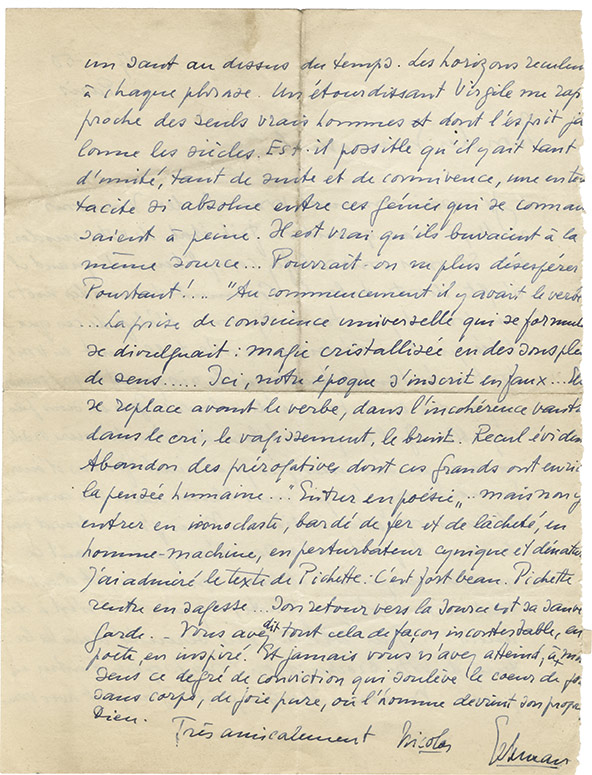 un saut au dessus du temps. Les horizons reculen
à chaque phrase. Un étourdissant Virgile me rap
proche des seuls vrais hommes et dont l'esprit ja
lonne les siècles. Est-il possible qu'il y ait tant
d'unité, tant de suite et de connivence, une enten
tacite si absolue entre ces génies qui se connais
saient à peine. Il est vrai qu'ils buvaient à la
même source... Pourrait-on ne plus désespérer
Pourtant!... "Au commencement il y avait le verbe
...La prise de conscience universelle qui se formule
se divulguait : magie cristallisée en des sons plei
de sens..... Ici, notre époque s'inscrit en faux... El
se replace avant le verbe, dans l'incohérence vanté
dans le cri, le vagissement, le bruit. Recul éviden
Abandon des prérogatives dont ces grands ont enric
la pensée humaine... "Entrer en poésie"... mais non y
entrer en iconoclaste, bardé de fer et de lâcheté, en
homme-machine, en perturbateur cynique et dénatur
J'ai admiré le texte de Pichette : C'est fort beau. Pichette
rentre en sagesse... Son retour vers la source est sa sauve
garde. - Vous avez dit tout cela de façon incontestable, en
poète, en inspiré. Et jamais vous n'avez atteint, à mon
sens ce degré de conviction qui soulève le coeur de joie
sans corps, de joie pure, où l'homme devient son propre
Dieu.
Très amicalement Nicolas